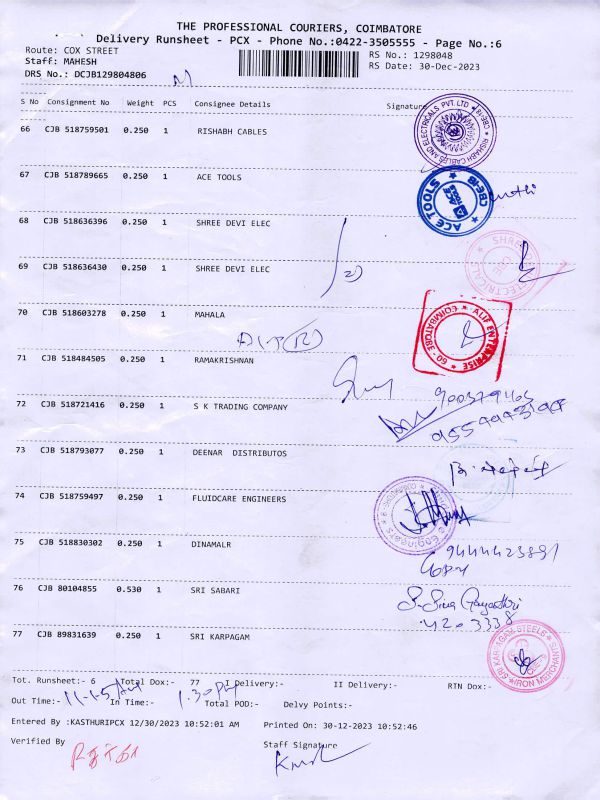 THE PROFESSIONAL COURIERS, COIMBATORE
Delivery Runsheet - PCX - Phone No.:0422-3505555 - Page No.:6
Route: COX STREET
RS No.: 1298048
Staff: MAHESH
RS Date: 30-Dec-2023
DRS No.: DCJB129804806
S No Consignment No Weight PCS Consignee Details Signature
66 CJB 518759501 0.250 1 RISHABH CABLES
RISHABH CABLES AND ELECTRICALS PVT. LTD. CBE-18
67 CJB 518789665 0.250 1 ACE TOOLS
ACE TOOLS CBE-18
68 CJB 518636396 0.250 1 SHREE DEVI ELEC
69 CJB 518636430 0.250 1 SHREE DEVI ELEC
SHREE ELECTRICAL
70 CJB 518603278 0.250 1 MAHALA
ALIF ENTERPRISE COIMBATORE
71 CJB 518484505 0.250 1 RAMAKRISHNAN
72 CJB 518721416 0.250 1 S K TRADING COMPANY
73 CJB 518793077 0.250 1 DEENAR DISTRIBUTOS
74 CJB 518759497 0.250 1 FLUIDCARE ENGINEERS
Engineers
75 CJB 518830302 0.250 1 DINAMALR
76 CJB 80104855 0.530 1 SRI SABARI
77 CJB 89831639 0.250 1 SRI KARPAGAM
SRI KARPAGAM STEELS IRON MERCHANTS
Tot. Runsheet:- 6 Total Dox:- 77 I Delivery:- II Delivery:- RTN Dox:-
Out Time:- In Time:- 1.30 PM Total POD:- Delvy Points:-
Entered By :KASTHURIPCX 12/30/2023 10:52:01 AM Printed On: 30-12-2023 10:52:46
Verified By Staff Signature